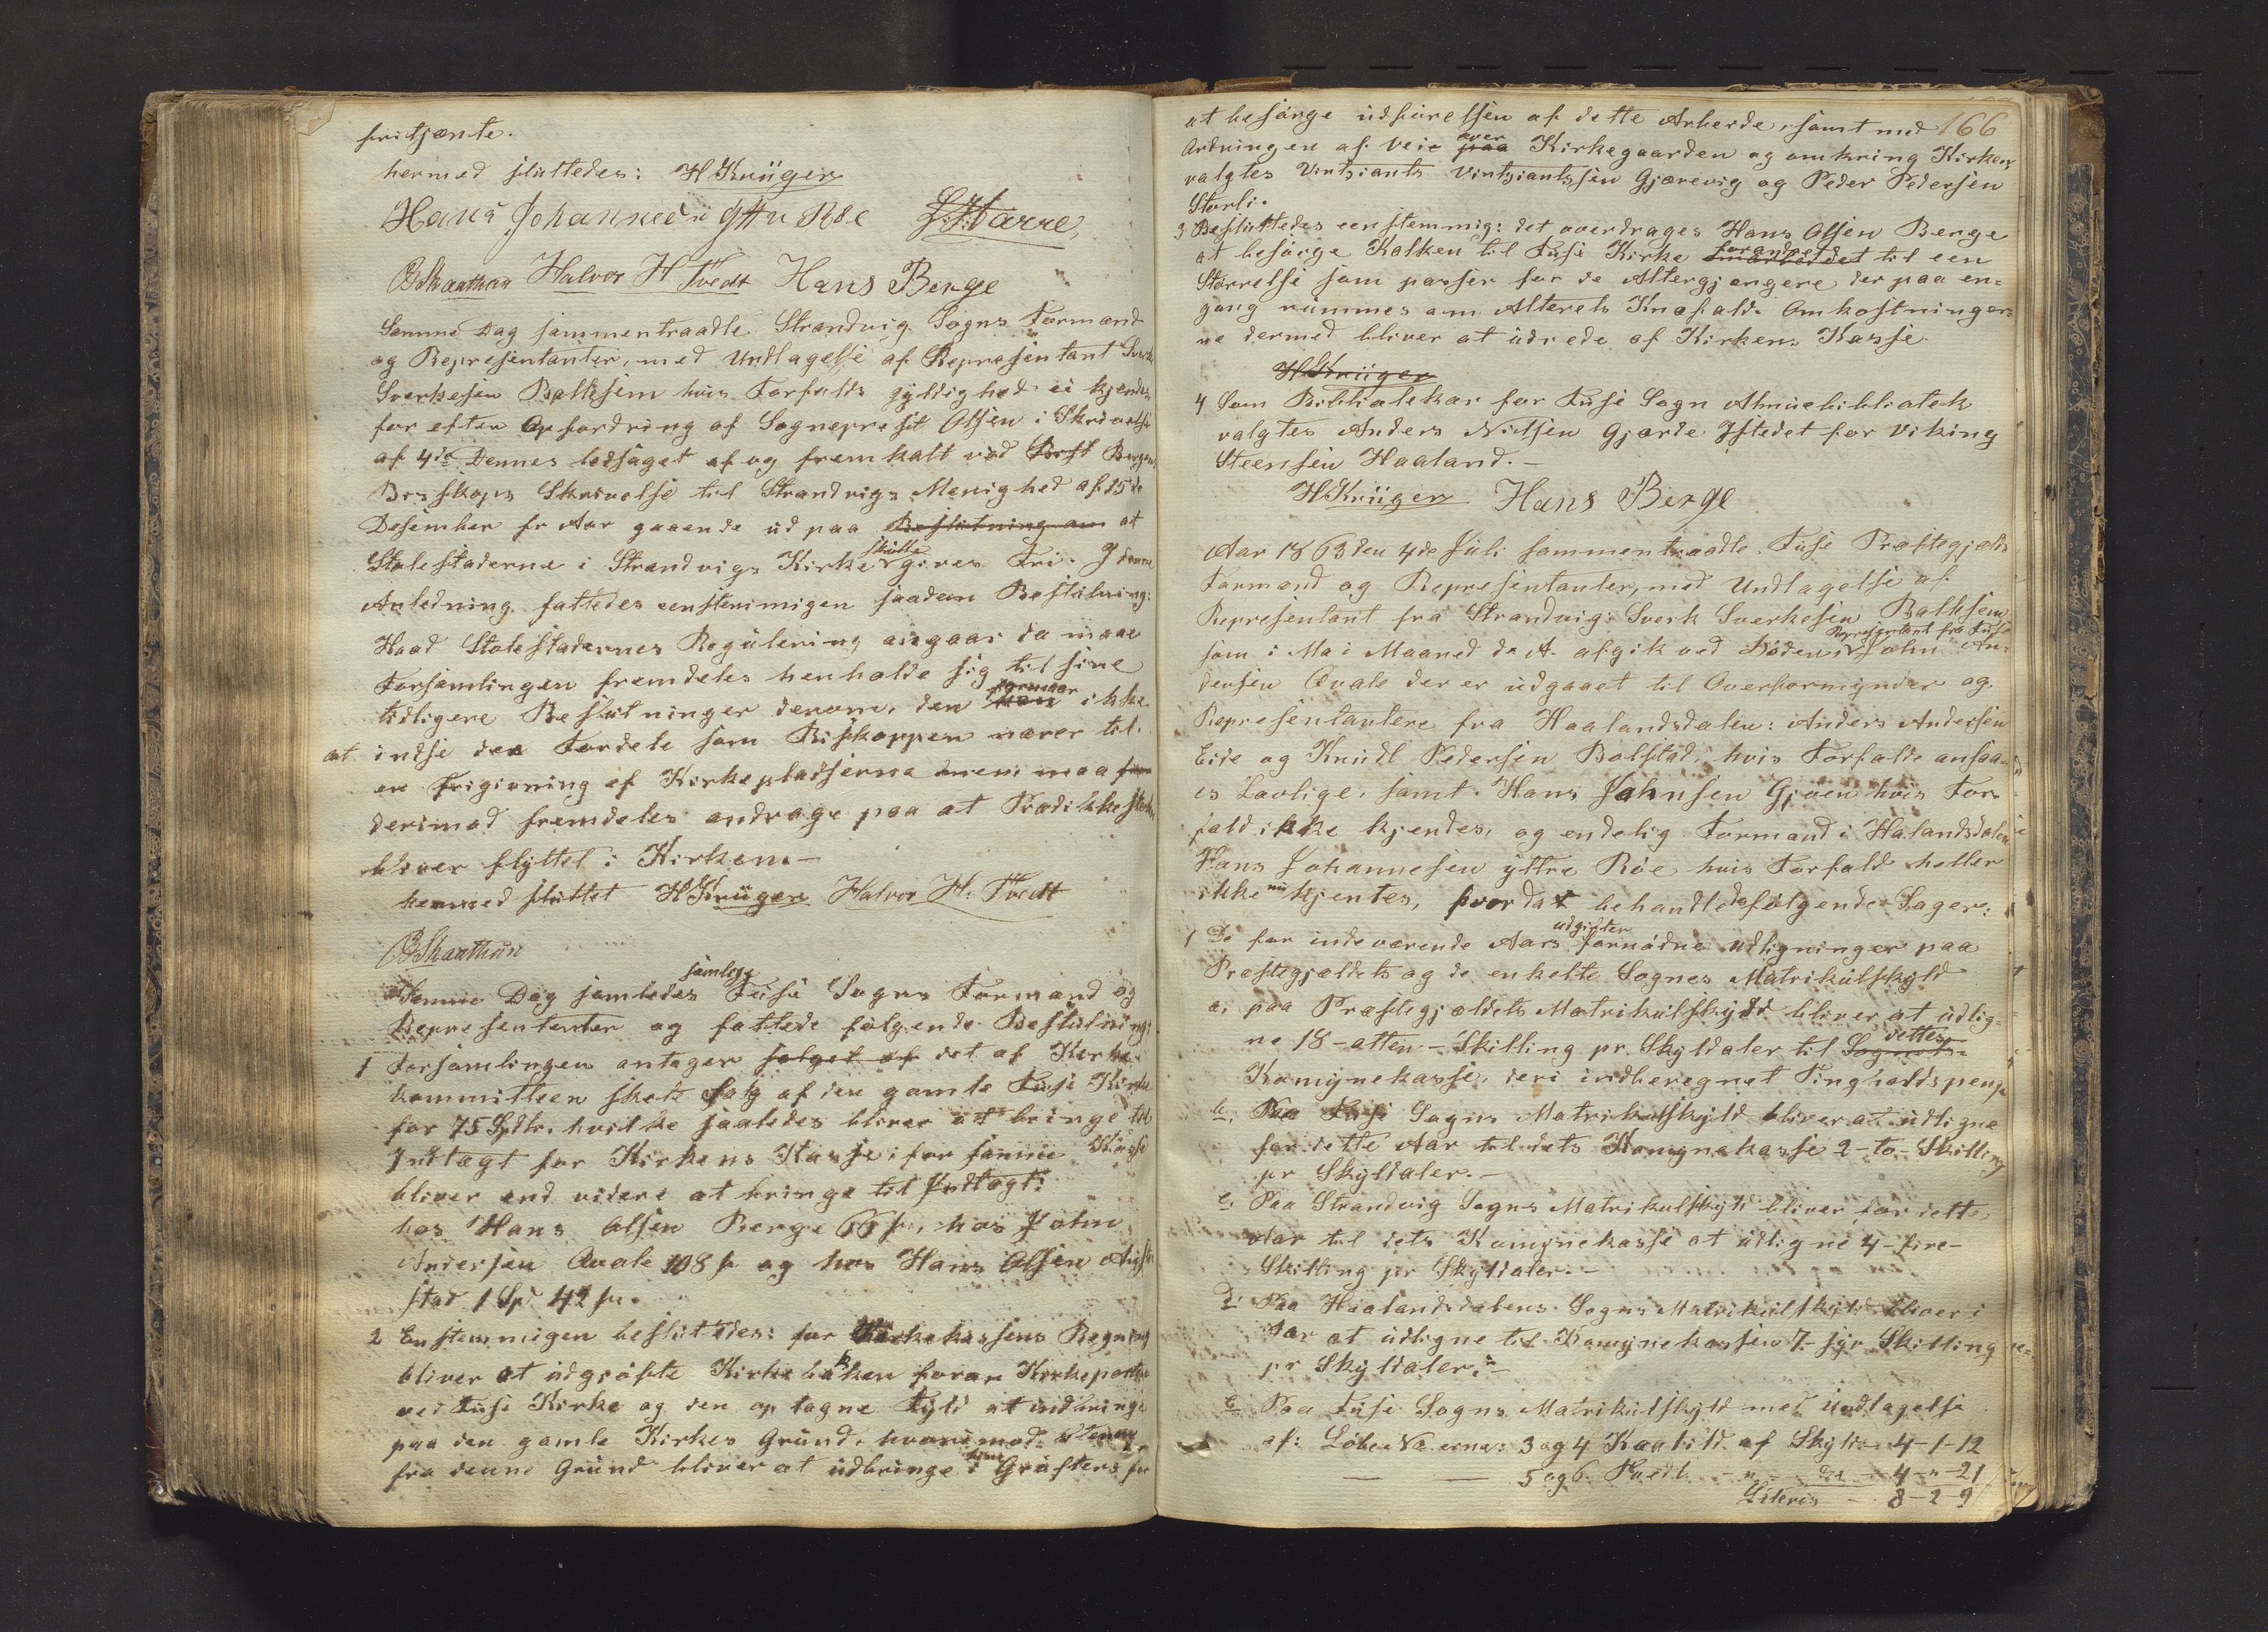 fritjænte.
hermed sluttedes: HKrüger
Hans Johannesen yttre Røe
BSkaathun Halvor H Tvedt Hans Berge
Samme Dag sammentraadte Strandvig Sogns Formænd
og Repræsentanter, med Undtagelse af Repræsentant Sverk
Sverkesen Balksem hvis Forfalds gyldighed ei kjendes
for efter Opfordring af Sogneprest Olsen i Skrivelse
af 4de Dennes ledsaget af og fremkalt ved Bergens
Bisskops Skrivelse til Strandvigs Menighed af 15de
Desember fr Aar gaaende ud paa Beslutning om at
Stolestaderne i Strandvigs Kirke skulle gives Fri. I denne
Anledning fattedes eenstemmigen saadan Beslutning:
Hvad Stolestadernes Regulering angaar da maae
Forsamlingen fremdeles henholde sig til sine
tidligere Beslutninger derom, den kan formaar ikke
at indse den Fordele som Biskoppen nærer til
en Frigivning af Kirkepladserne men maa
derimod fremdeles andrage paa at Prædikkestolen
bliver flyttet i Kirken.-
hermed sluttet HKrüger Halvor H. Tvedt
BSkaathun
Samme Dag samledes samlige Fuse Sogns Formænd og
Repræsentanter og fattede følgende Beslutning:
1 Forsamlingen antager salget af det af Kirke-
kommitteen skete Salg af den gamle Fuse Kirke
for 75 Spdlr. hvilke saaledes bliver at bringe til
Indtægt for Kirkens Kasse; for samme Kasse
bliver end videre at bringe til Indtægt:
hos Hans Olsen Berge 66 s, hos John
Andersen Qvale 108 s og hos Hans Olsen
stad 1 Spd 42 s.
2 Enstemmigen besluttedes: for Kirkekassens Regning
bliver at udgrøfte Kirkebakken foran Kirkeporten
ved Fuse Kirke og den optagne Fyld at indbringe
paa den gamle Kirkes Grund, hvorimod Stenene
fra denne Grund bliver at udbringe i Grøften, for
166
at besørge udførelsen af dette Arbeide, samt med
Ordningen af Veie paa over Kirkegaarden og omkring Kirken,
valgtes Vintsiants Vintsiantssen Gjærevig og Peder Pedersen
Storli.
3 Besluttedes eenstemmig: det overdrages Hans Olsen Berge
at besørge Kalken til Fuse Kirke forandret til een
Størrelse som passer for de Altergjængere der paa en-
gang rummes om Alterets Knæfald. Omkostninger-
ne dermed bliver at udrede af Kirkens Kasse.
HKrüger
4 Som Bibliotekar for Fuse Sogn Almuebibliotek
valgtes Anders Nilsen Gjærde Istedet for Viking
Steensen Haaland.-
HKrüger Hans Berge
Aar 1863 den 4de Juli sammentraadte Fuse Præstegjælds
Formænd og Repræsentanter, med Undtagelse af
Repræsentant fra Strandvig: Sverk Sverkesen Balksem
som i Mai Maaned d. A. afgik ved Døden, Repræsentant fra Fuse John An-
dersen Qvale der er udgaaet til Overformynder og
Repræsentantere fra Haalandsdalen: Anders Andersen
Eide og Knudt Pedersen Bolstad, hvis Forfald ansaa-
es Lovlige, samt Hans Johnsen Gjøen hvis For-
fald ikke kjendes, og endelig Formand i Halandsdalen
Hans Johannesen yttre Røe hvis Forfald heller
ikke nu kjentes, hvor da behandledes følgende Sager:
1 De for indeværende Aars udgivter fornødne udligninger paa
Præstegjældets og de enkelte Sognes Matrikulskyld
a. paa Præstegjældets Matrikulskyld bliver at udlig-
ne 18-atten-Skilling pr. Skyldaler til Sognets dettes
Komynekasse, deri indberegnet Tingholdspenge
b. Paa Fuse Sogns Matrikulskyld bliver at udligne
for dette Aar til dets Komynekasse 2-to-Skilling
pr Skyldaler.-
c. Paa Strandvig Sogns Matrikulskyld bliver for dette
Aar til dets Komynekasse at udligne 4-fire-
Skilling pr Skyldaler.-
d. Paa Haalandsdalens Sogns Matrikulskyld bliver i
Aar at udligne til Komynekassen 7-syv Skilling
pr Skyldaler.-
e Paa Fuse Sogns Matrikulskyld med Undtagelse
af: Løbe No erne: 3 og 4 af Skyld 4-1-12
5 og 6 - " - - 4-"-21
8-2-9